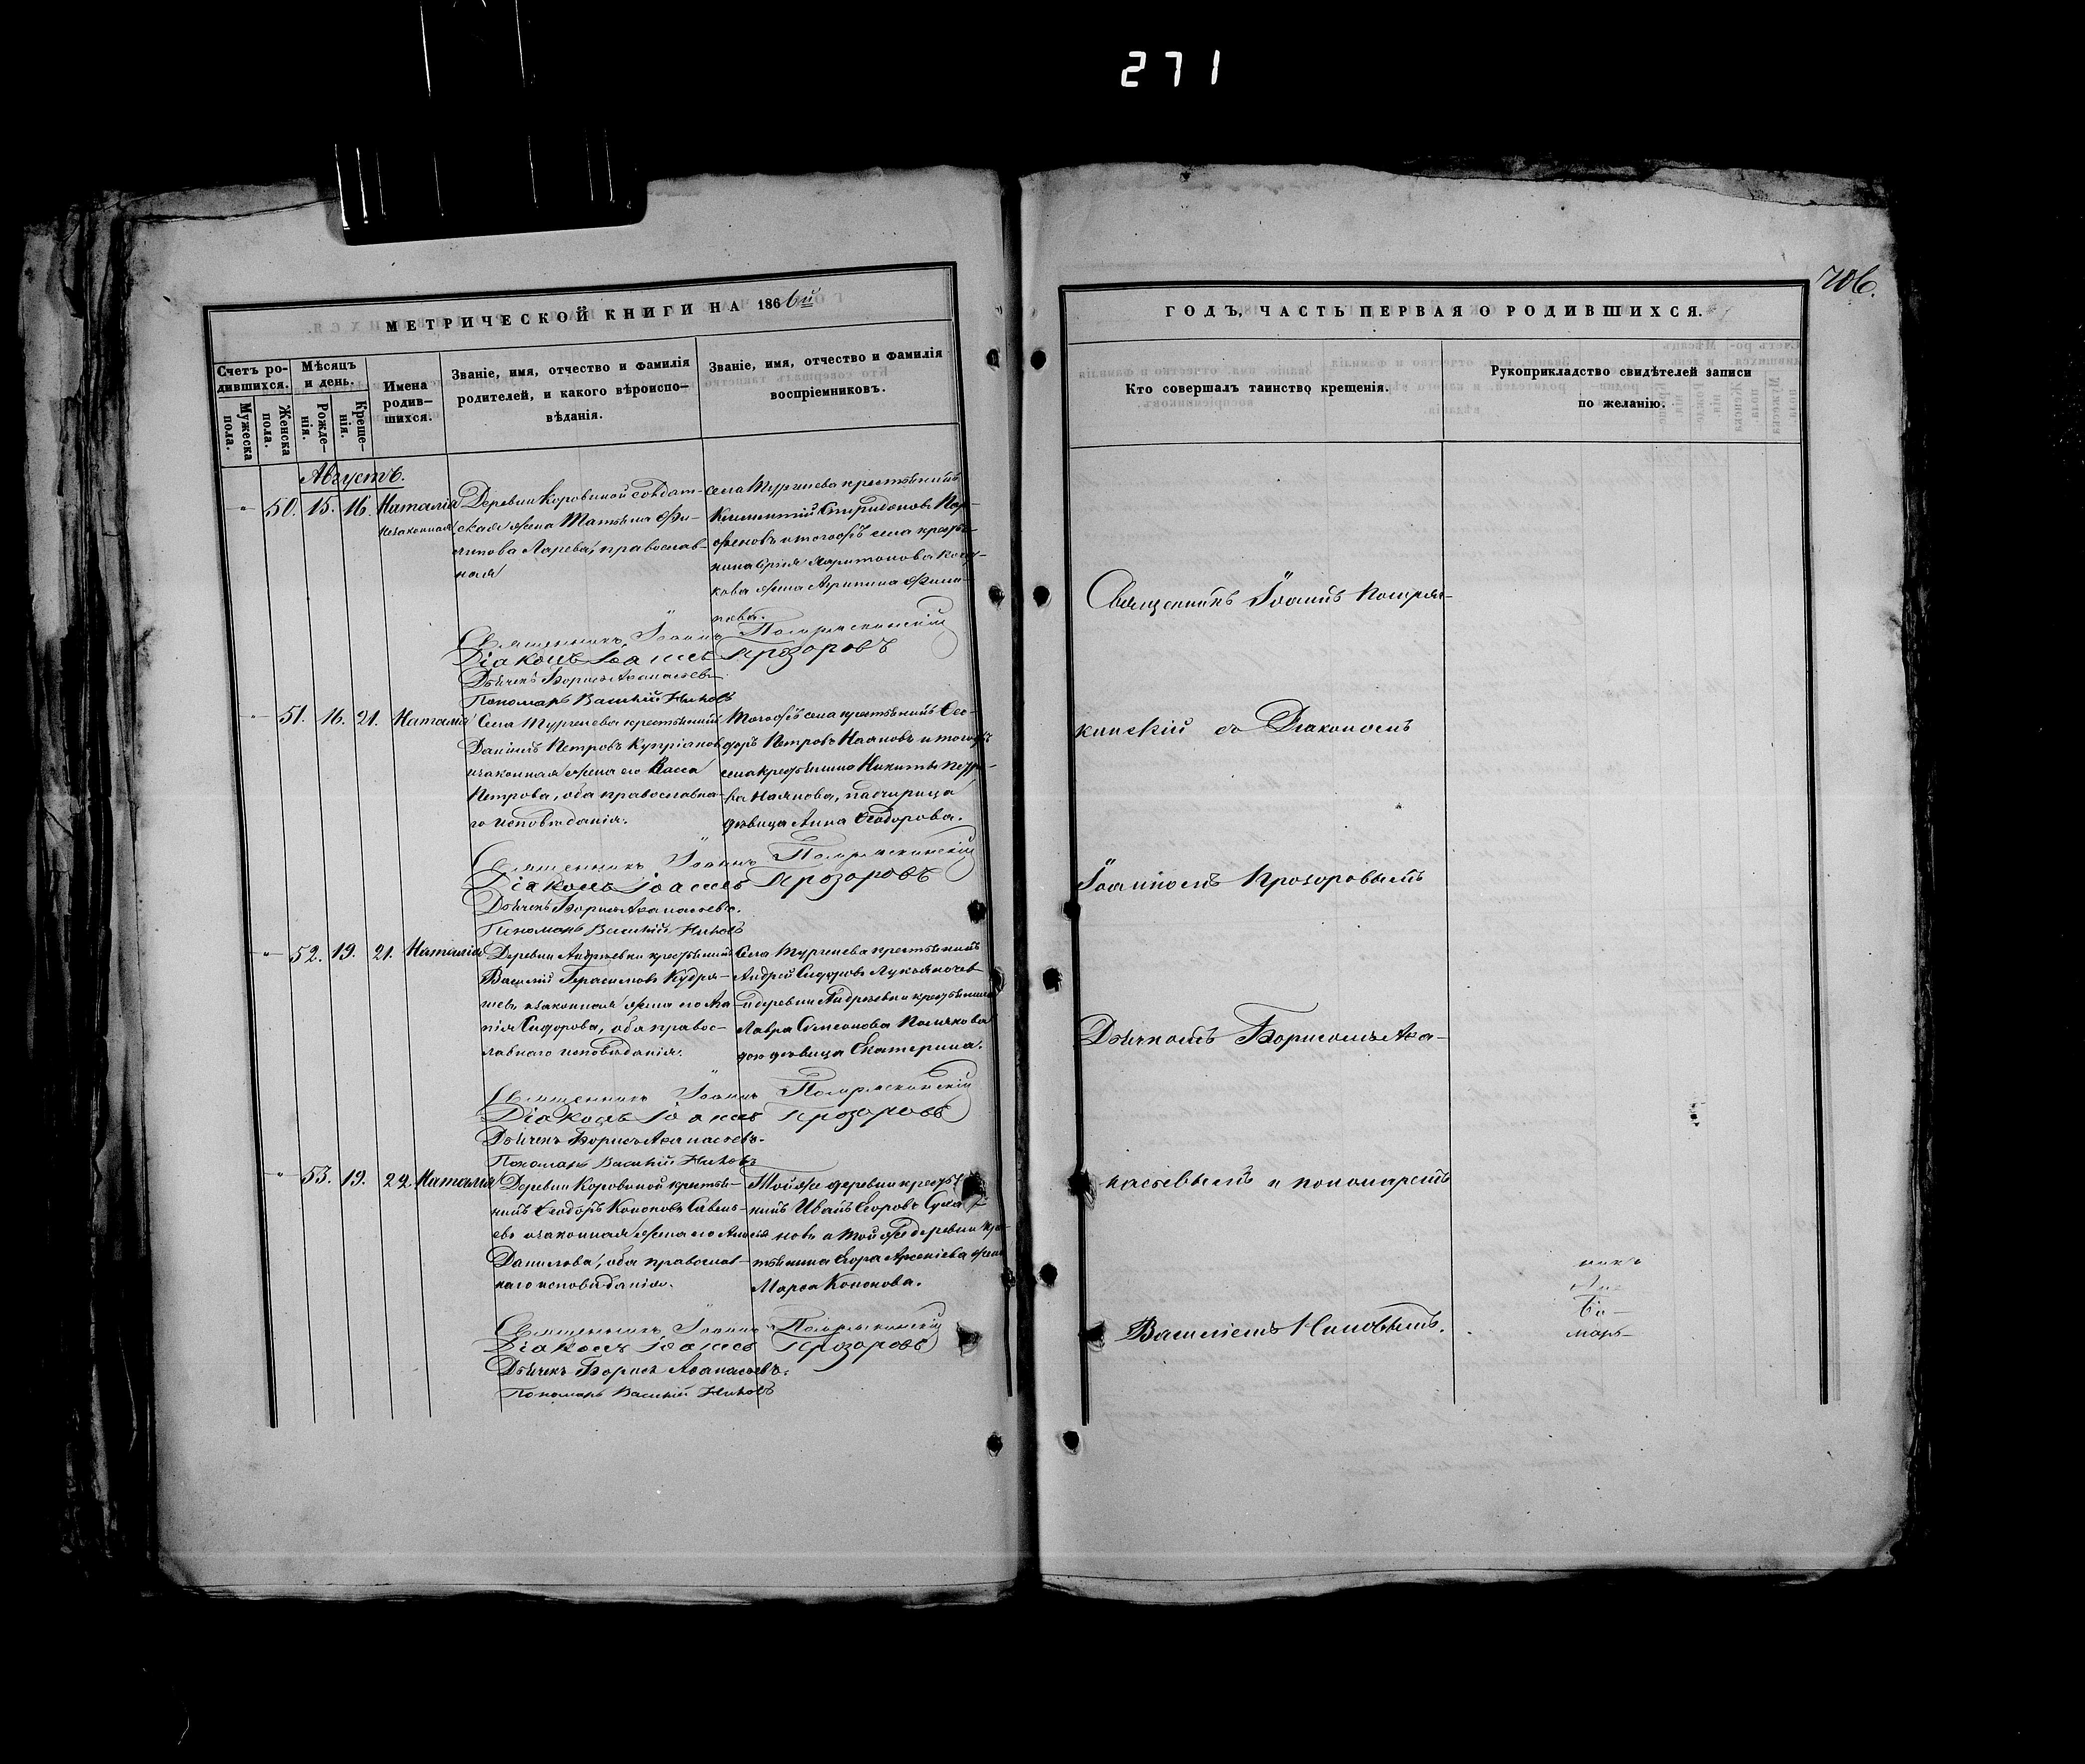 271
706.
МЕТРИЧЕСКОЙ КНИГИ НА 1866й
Счетъ ро-
дившихся.
Мужеска
пола.
Женска
пола.
Мѣсяцъ
и день.
Рожде-
нія.
Креще-
нія.
Имена
родив-
шихся.
Званіе, имя, отчество и фамилія
родителей, и какого вѣроиспо-
вѣданія.
Званіе, имя, отчество и фамилія
воспріемниковъ.
Августъ.
50. 15. 16. Наталія
незаконная
Деревни Коровиной солдат-
ская жена Татьяна Фи-
липова Ларева, православ-
ная
села Тургенева крестьянинъ
Климентій Спиридоновъ Пар-
феновъ и тогожъ села кресть-
янина Харитонова
кова жена Агрипина Фили-
пова.
Священникъ Іоаннъ
Діаконъ Іоаннъ Прозоровъ
Дьячекъ Борисъ Аѳанасьевъ
Пономарь Василій
51. 16. 21. Наталія
Села Тургенева крестьянинъ
Даніилъ Петровъ Купріянов
и законная жена его Васса
Петрова, оба православна-
го исповѣданія.
Тогожъ села крестьянинъ Ѳео-
доръ Петровъ Наяновъ и тогожъ
села крестьянина Никиты Петро-
ва Наянова, падчерица
дѣвица Анна Ѳеодорова.
Священникъ Іоаннъ
Діаконъ Іоаннъ Прозоровъ
Дьячекъ Борисъ Аѳанасьевъ.
Пономарь Василій
52. 19. 21. Наталія
Деревни Андреевки крестьянинъ
Василій Герасимовъ Кудря-
шевъ и законная жена его Ага-
пія Сидорова, оба правос-
лавнаго исповѣданія.
Села Тургенева крестьянинъ
Андрей Сидоровъ
и деревни Андреевки крестьянина
Лавра Симеонова Полякова
дочь дѣвица Екатерина.
Священникъ Іоаннъ
Діаконъ Іоаннъ Прозоровъ
Дьячекъ Борисъ Аѳанасьевъ.
Пономарь Василій
53. 19. 22. Наталія
Деревни Коровиной крестья-
нинъ Ѳеодоръ Кононовъ Савель-
евъ и законная жена его
Данилова, оба православ-
наго исповѣданія.
Той же деревни кресть-
нинъ Иванъ Егоровъ
новъ и той же деревни кре-
стьянина Егора Арсеніева жена
Марѳа Кононова.
Священникъ Іоаннъ
Діаконъ Іоаннъ Прозоровъ
Дьячекъ Борисъ Аѳанасьевъ.
Пономарь Василій
ГОДЪ, ЧАСТЬ ПЕРВАЯ О РОДИВШИХСЯ.
Кто совершалъ таинство крещенія.
Рукоприкладство свидѣтелей записи
по желанію.
Священникъ Іоаннъ
кинскій съ Діакономъ
Іоанномъ Прозоровымъ
Дьячкомъ Борисомъ Аѳа-
насьевымъ и пономаремъ
Василіемъ